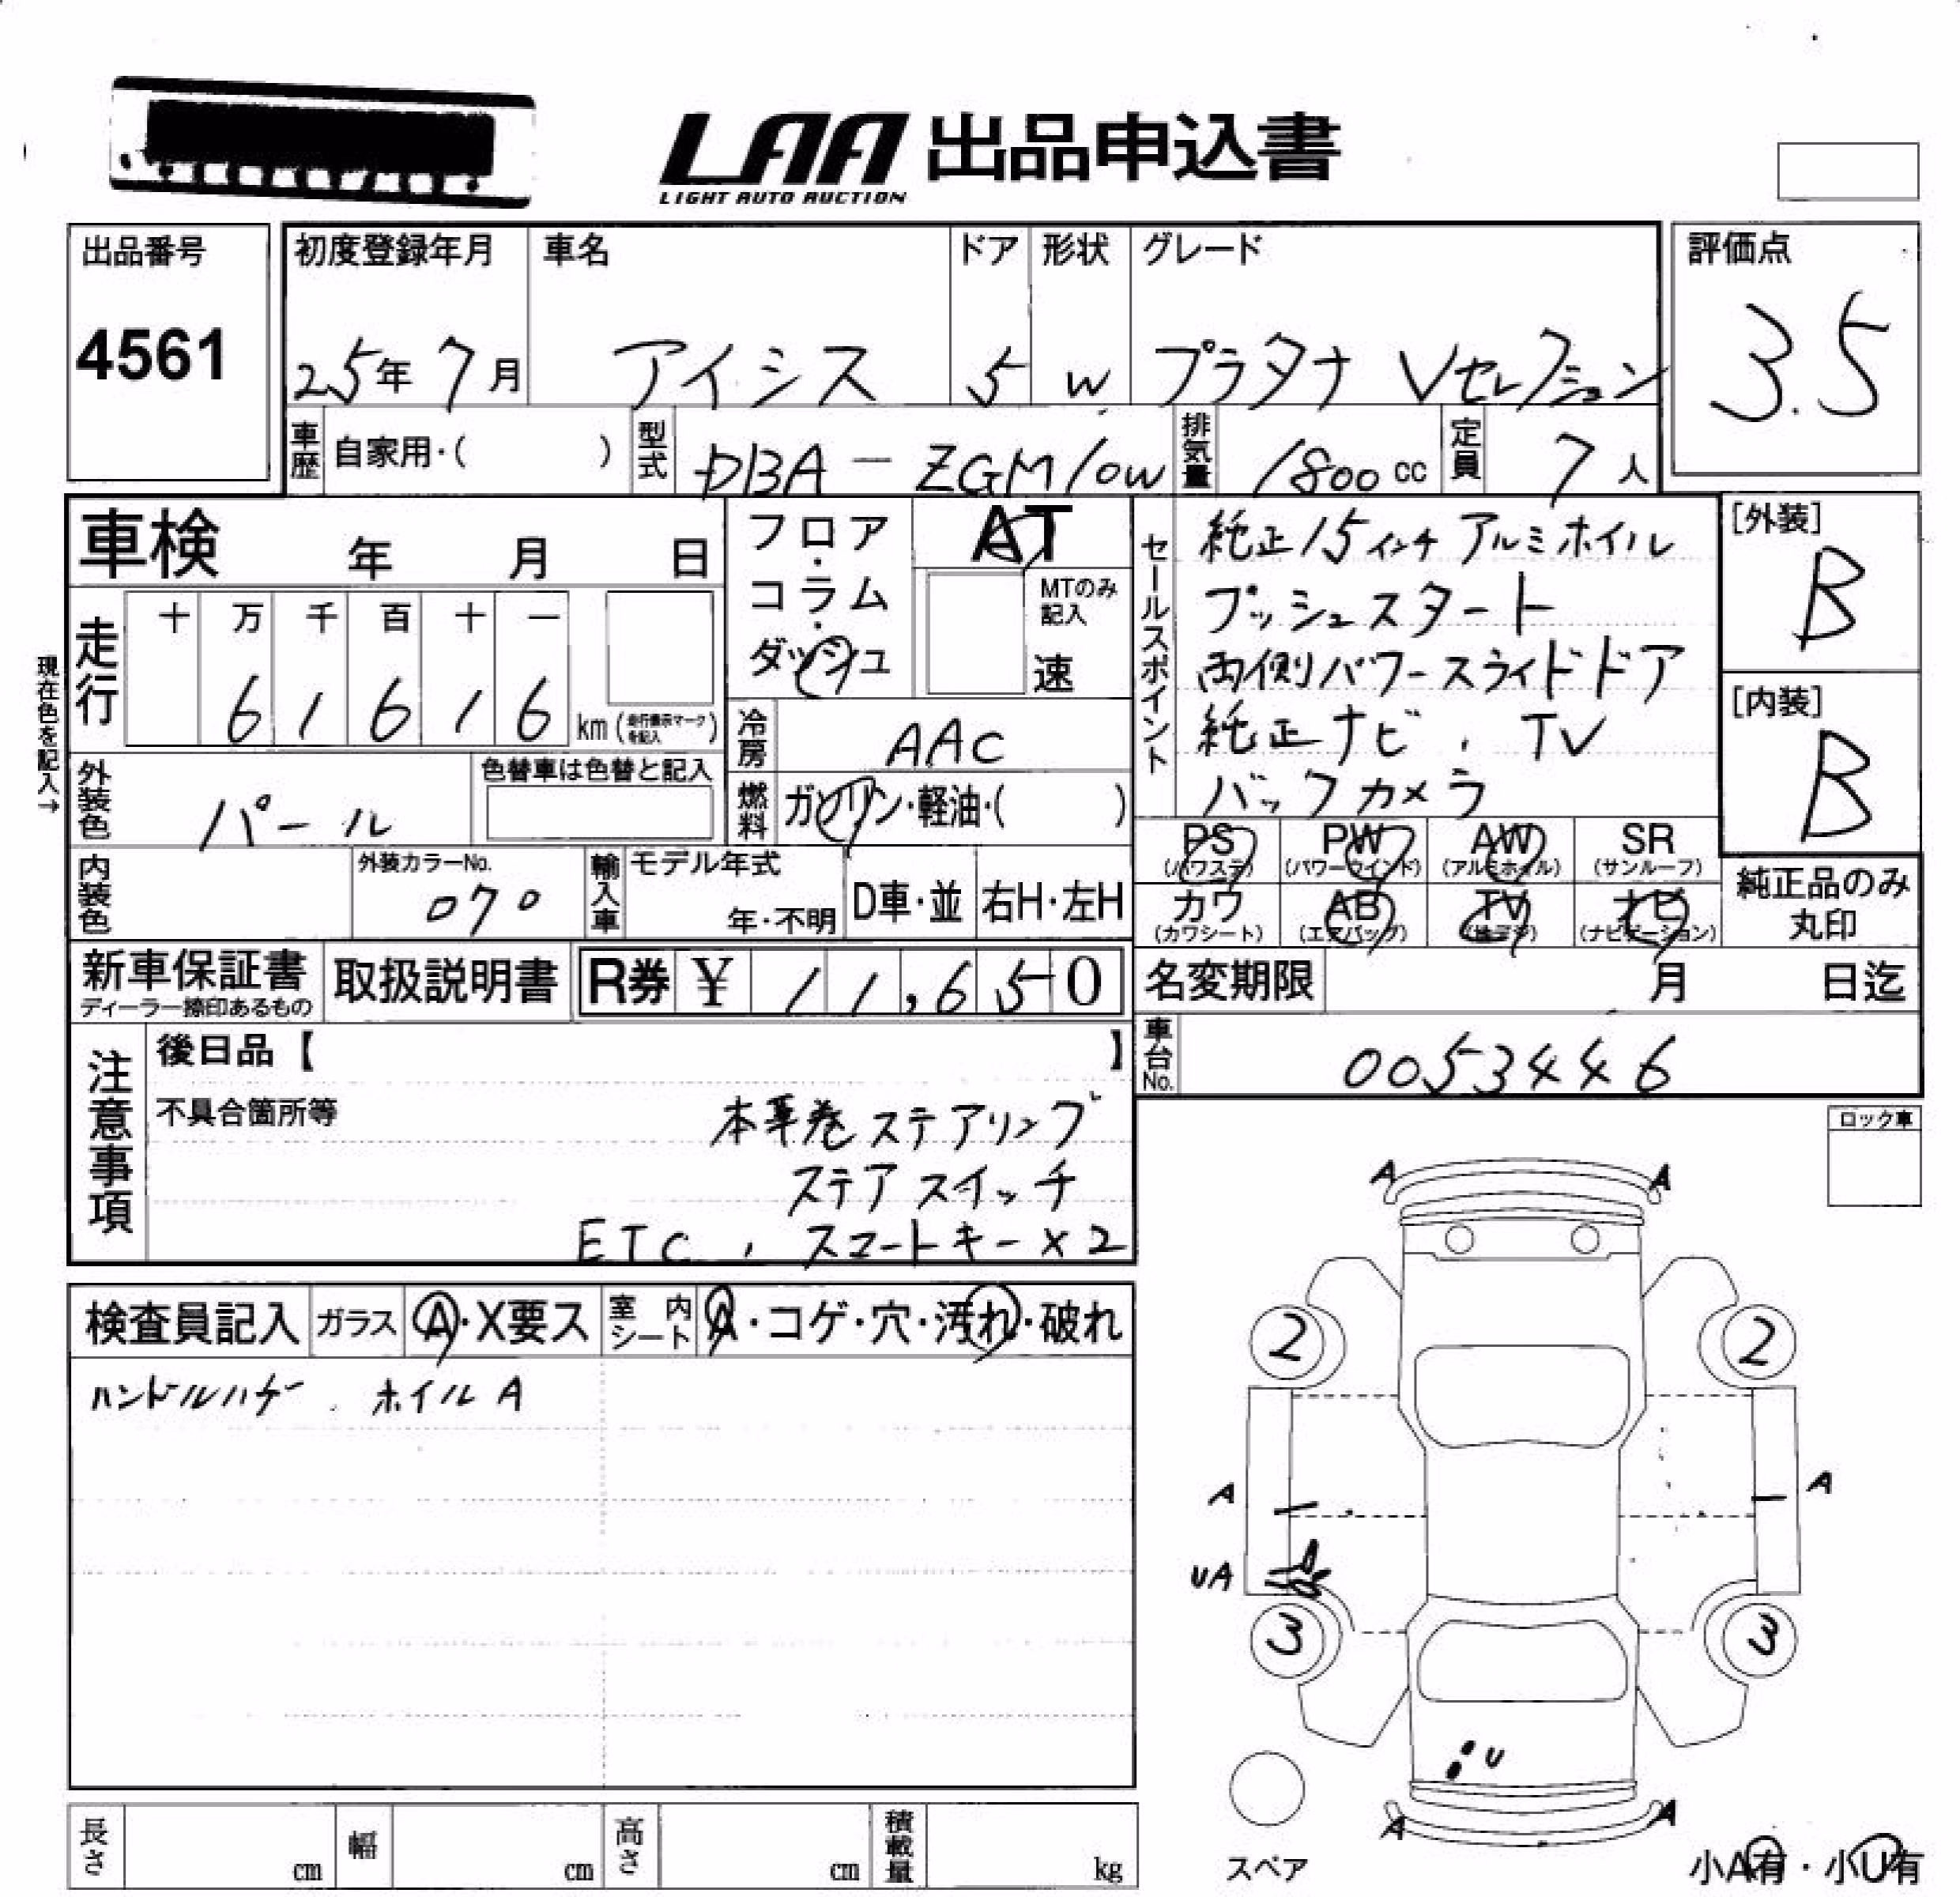 LAA 出品申込書
LIGHT AUTO AUCTION
出品番号
4561
初度登録年月
25年 7月
車名
アイシス
ドア
5
形状
W
グレード
プラタナ Vセレクション
評価点
3.5
車歴
自家用・( )
型式
DBA-ZGM10W
排気量
1800 cc
定員
7 人
車検 年 月 日
フロア・コラム・ダッシュ
AT
MTのみ記入
速
セールスポイント
純正15インチ アルミホイル
プッシュスタート
両側パワースライドドア
純正ナビ, TV
バックカメラ
[外装]
B
[内装]
B
現在色を記入→
走行
十 万 千 百 十 一
6 1 6 1 6 km (走行表示マークを記入)
冷房
AAC
燃料
ガソリン・軽油・( )
外装色
パール
色替車は色替と記入
内装色
外装カラーNo.
070
輸入車
モデル年式
年・不明
D車・並
右H・左H
PS (パワステ)
PW (パワーウインド)
AW (アルミホイル)
SR (サンルーフ)
カワ (カワシート)
AB (エアバッグ)
TV (地デジ)
ナビ (ナビゲーション)
純正品のみ
丸印
新車保証書
ディーラー捺印あるもの
取扱説明書
R券 ¥ 11,650
名変期限 月 日迄
車台No.
0053446
注意事項
後日品【 】
不具合箇所等
本革巻ステアリング
ステアスイッチ
ETC, スマートキー×2
ロック車
検査員記入
ガラス
A・X要ス
室内シート
A・コゲ・穴・汚れ・破れ
ハンドルハゲ. ホイルA
A A
2 2
A A
UA
3 3
U
A A
スペア
小A有・小U有
長さ cm
幅 cm
高さ cm
積載量 kg